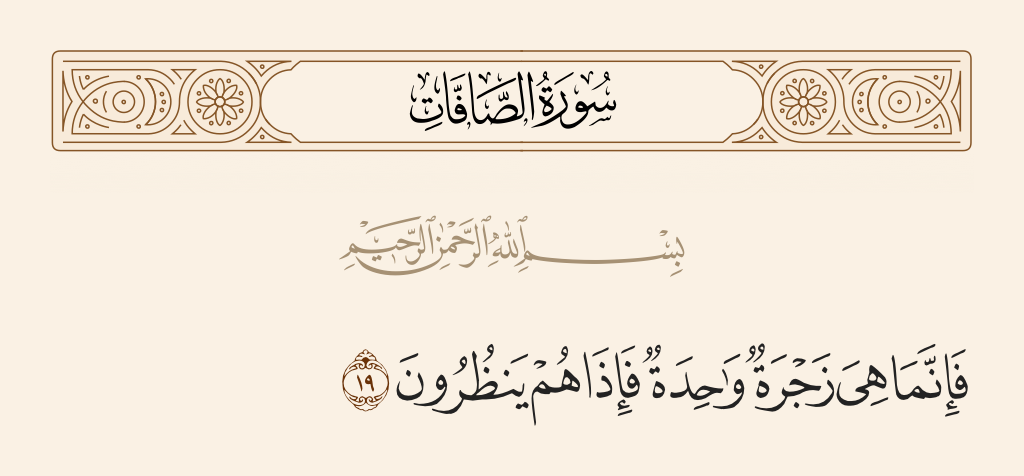 سُورَةُ الصَّافَّاتِ
بِسْمِ ٱللَّهِ ٱلرَّحْمَٰنِ ٱلرَّحِيمِ
فَإِنَّمَا هِىَ زَجْرَةٌ وَٰحِدَةٌ فَإِذَا هُمْ يَنظُرُونَ ١٩